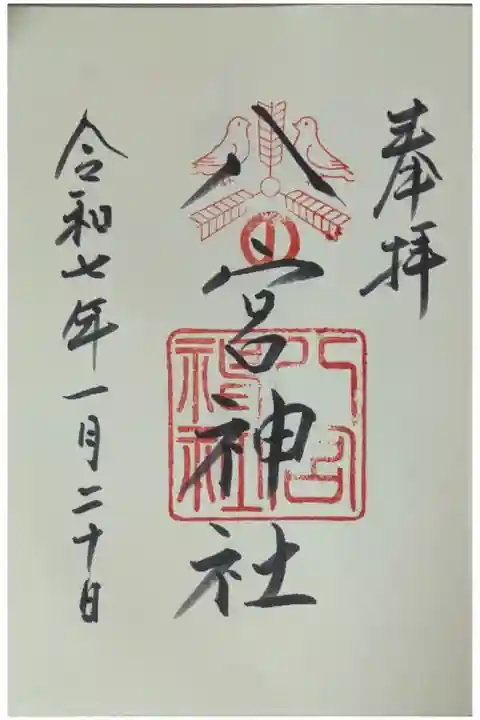 奉拝
八宮神社
令和七年一月二十日
八宮神社